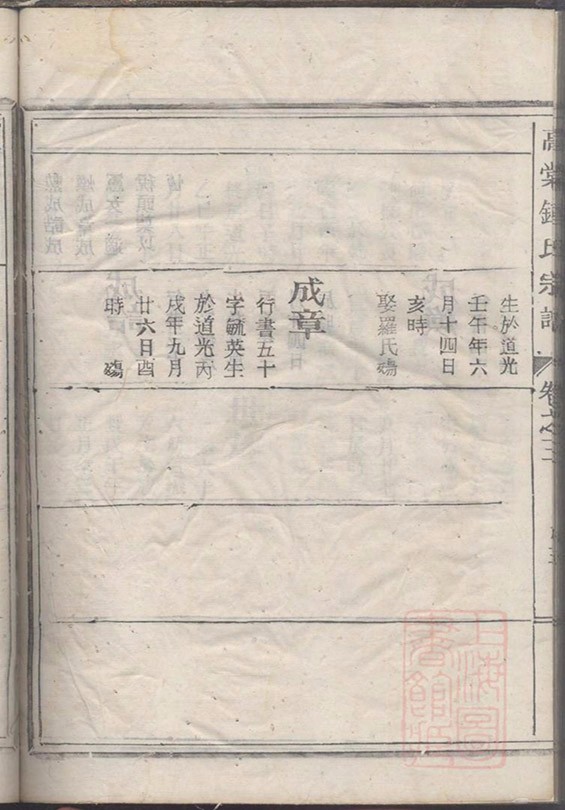 高棠鍾氏宗譜
卷之三
生於道光
壬午年六
月十四日
亥時
娶羅氏殤
成章
行書五十
字毓英生
於道光丙
戌年九月
廿六日酉
時 殤
上海圖
書館藏